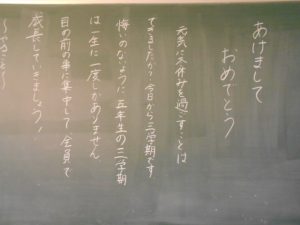 あけまして
おめでとう
元気に冬休みを過ごすことは
できましたか?今日から三学期です
悔いのないように五年生の三学期
は一生に一度しかありません
目の前の事に集中して全員で
成長していきましょう!